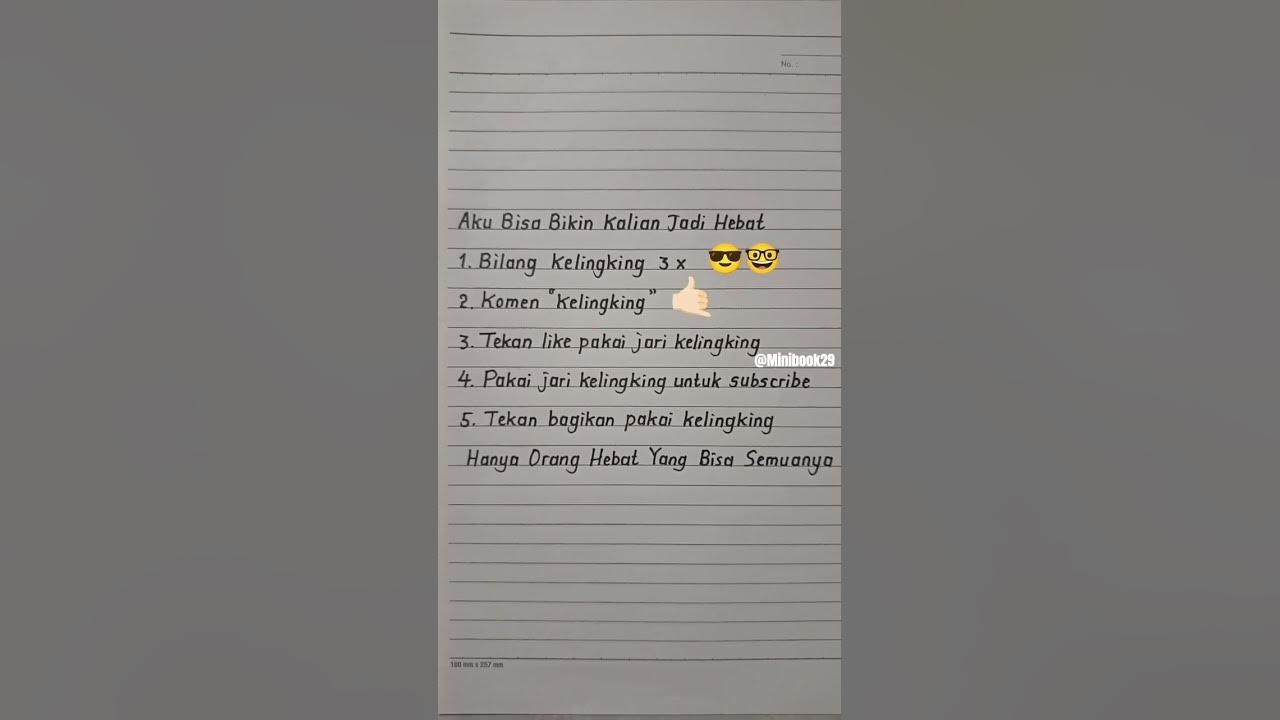 No. :
Aku Bisa Bikin Kalian Jadi Hebat
1. Bilang kelingking 3 x 😎🤓
2. Komen "kelingking" 🤙🏻
3. Tekan like pakai jari kelingking
@Minibook29
4. Pakai jari kelingking untuk subscribe
5. Tekan bagikan pakai kelingking
Hanya Orang Hebat Yang Bisa Semuanya
180 mm x 257 mm